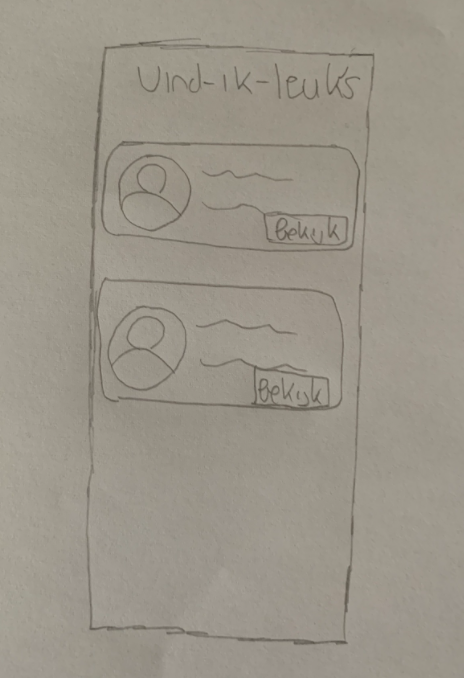 Vind-ik-leuks
Bekijk
Bekijk